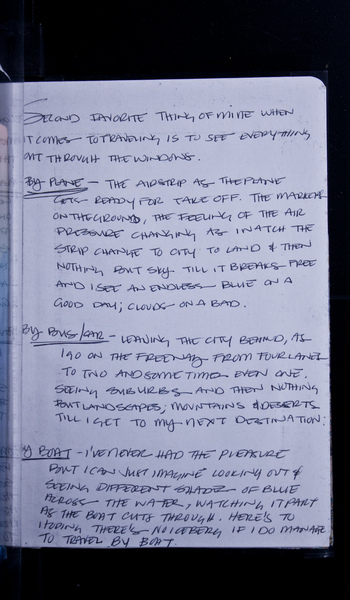 SECOND FAVORITE THING OF MINE WHEN
IT COMES TO TRAVELING IS TO SEE EVERYTHING
OUT THROUGH THE WINDOWS.
BY PLANE - THE AIRSTRIP AS THE PLANE
GETS READY FOR TAKE OFF. THE MARKER
ON THE GROUND, THE FEELING OF THE AIR
PRESSURE CHANGING AS I WATCH THE
STRIP CHANGE TO CITY TO LAND & THEN
NOTHING BUT SKY TILL IT BREAKS FREE
AND I SEE AN ENDLESS BLUE ON A
GOOD DAY; CLOUDS ON A BAD.
BY BUS/CAR - LEAVING THE CITY BEHIND, AS
I GO ON THE FREEWAY FROM FOUR LANES
TO TWO AND SOMETIMES EVEN ONE.
SEEING SUBURBS AND THEN NOTHING
BUT LANDSCAPES; MOUNTAINS & DESERTS
TILL I GET TO MY NEXT DESTINATION.
BY BOAT - I'VE NEVER HAD THE PLEASURE
BUT I CAN JUST IMAGINE LOOKING OUT &
SEEING DIFFERENT SHADES OF BLUE
ACROSS THE WATER, WATCHING IT PART
AS THE BOAT CUTS THROUGH. HERE'S TO
HOPING THERE'S NO ICEBERG IF I DO MANAGE
TO TRAVEL BY BOAT.